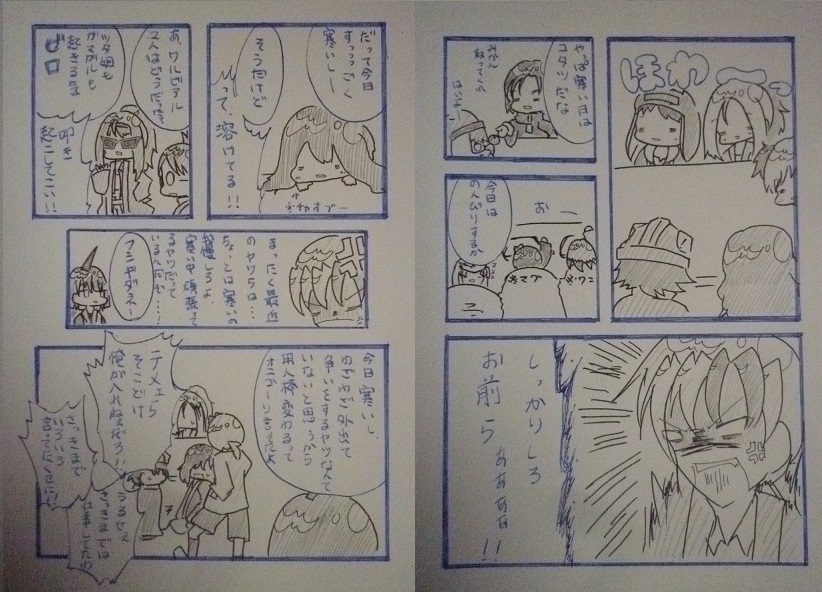 ほわ〜
やっぱ寒い日は
コタツだな
みかん
取ってー
はいよー
今日は
のんびりするか
おー
※マグ
※ワニ
しっかりしろ
お前ら
ぁぁぁぁ!!
だって今日
すっっごく
寒いしー
そうだけど
って、溶けてる!!
※オブー
あ、ワルビアル
2人はどうだった?
ツタ姐も
ガマガルも
起きる気
ゼロ
叩き
起こしてこい!!
まったく最近
のヤツらは…
ちょっとは寒いの
我慢しろよ
寒い中頑張って
るヤツだって
いるんだぞ……
フシャダネー
今日寒いし
わざわざ外出て
争いをするヤツなんて
いないと思うから
用心棒変わるって
オニゴーリ言ってたよ
テメェら
そこどけ
俺が入れねぇだろ!!
うるせぇ
さっきまでは
仕事してたわ
さっきまで
いろいろ
言ってたくせに!!